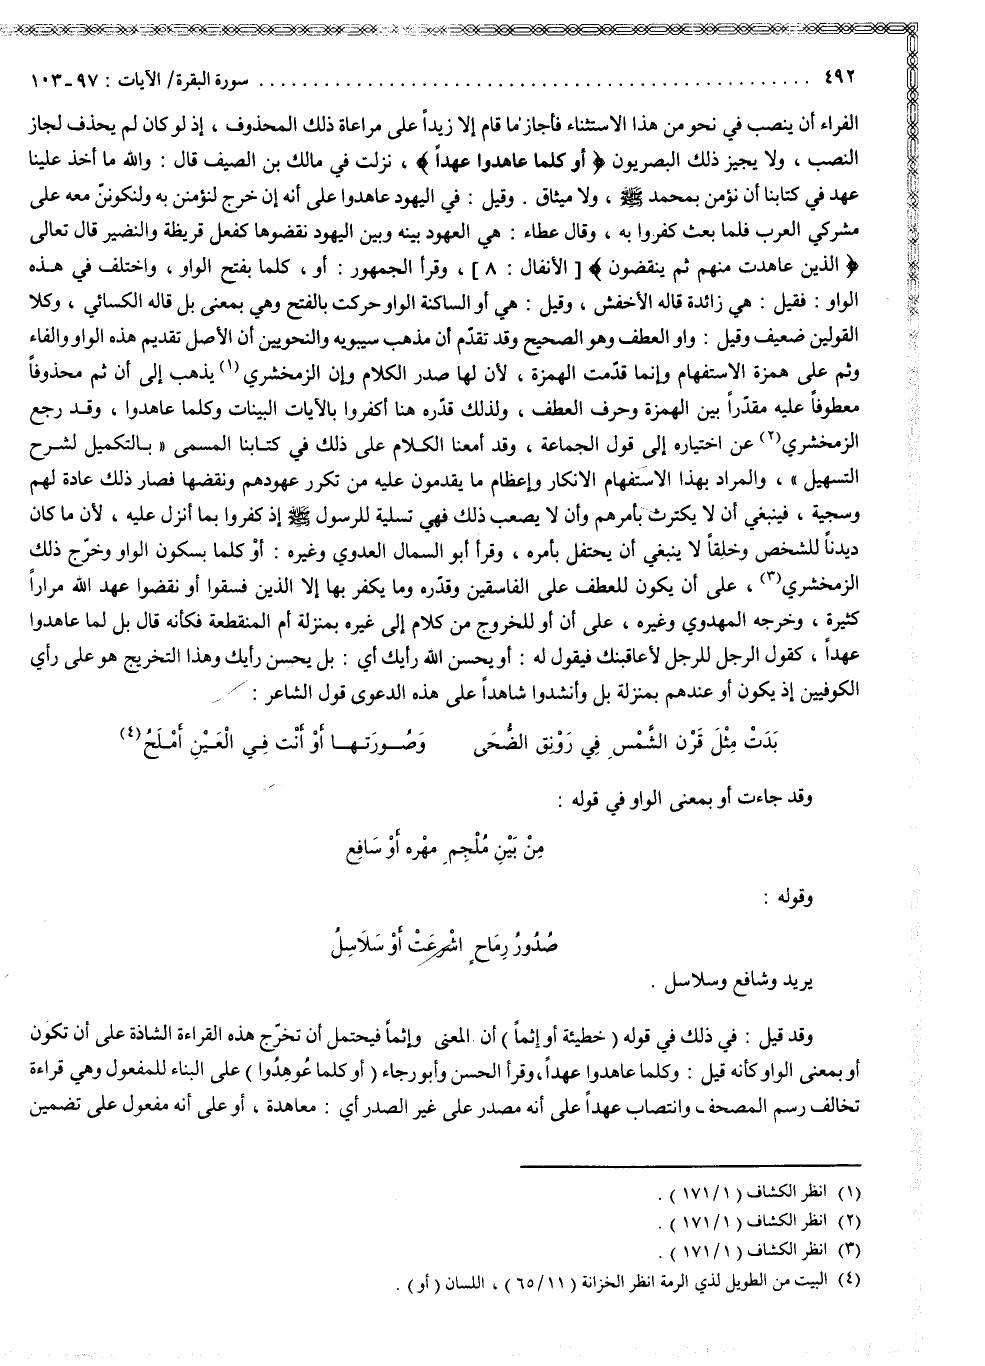 ٤٩٢ . . . . . . . . . . . . . . . . . . . . . . . . . . . . . . سورة البقرة/ الآيات : ٩٧ـ١٠٣
الفراء أن ينصب في نحو من هذا الاستثناء فأجاز ما قام إلا زيداً على مراعاة ذلك المحذوف ، إذ لو كان لم يحذف لجاز
النصب ، ولا يجيز ذلك البصريون ﴿ أو كلما عاهدوا عهداً ﴾ ، نزلت في مالك بن الصيف قال : والله ما أخذ علينا
عهد في كتابنا أن نؤمن بمحمد ﷺ ، ولا ميثاق . وقيل : في اليهود عاهدوا على أنه إن خرج لنؤمنن به ولنكوننّ معه على
مشركي العرب فلما بعث كفروا به ، وقال عطاء : هي العهود بينه وبين اليهود نقضوها كفعل قريظة والنضير قال تعالى
﴿ الذين عاهدت منهم ثم ينقضون ﴾ [ الأنفال : ٨ ] ، وقرأ الجمهور : أو ، كلما بفتح الواو ، واختلف في هذه
الواو : فقيل : هي زائدة قاله الأخفش ، وقيل : هي أو الساكنة الواو حركت بالفتح وهي بمعنى بل قاله الكسائي ، وكلا
القولين ضعيف وقيل : واو العطف وهو الصحيح وقد تقدّم أن مذهب سيبويه والنحويين أن الأصل تقديم هذه الواو والفاء
وثم على همزة الاستفهام وإنما قدّمت الهمزة ، لأن لها صدر الكلام وإن الزمخشري(١) يذهب إلى أن ثم محذوفاً
معطوفاً عليه مقدّراً بين الهمزة وحرف العطف ، ولذلك قدّره هنا أكفروا بالآيات البينات وكلما عاهدوا ، وقد رجع
الزمخشري(٢) عن اختياره إلى قول الجماعة ، وقد أمعنا الكلام على ذلك في كتابنا المسمى « بالتكميل لشرح
التسهيل » ، والمراد بهذا الاستفهام الانكار وإعظام ما يقدمون عليه من تكرر عهودهم ونقضها فصار ذلك عادة لهم
وسجية ، فينبغي أن لا يكترث بأمرهم وأن لا يصعب ذلك فهي تسلية للرسول ﷺ إذ كفروا بما أنزل عليه ، لأن ما كان
ديدناً للشخص وخلقاً لا ينبغي أن يحتفل بأمره ، وقرأ أبو السمال العدوي وغيره : أوْ كلما بسكون الواو وخرّج ذلك
الزمخشري(٣) ، على أن يكون للعطف على الفاسقين وقدّره وما يكفر بها إلا الذين فسقوا أو نقضوا عهد الله مراراً
كثيرة ، وخرجه المهدوي وغيره ، على أن أو للخروج من كلام إلى غيره بمنزلة أم المنقطعة فكأنه قال بل لما عاهدوا
عهداً ، كقول الرجل للرجل لأعاقبنك فيقول له : أو يحسن الله رأيك أي : بل يحسن رأيك وهذا التخريج هو على رأي
الكوفيين إذ يكون أو عندهم بمنزلة بل وأنشدوا شاهداً على هذه الدعوى قول الشاعر :
بَدَتْ مِثْلَ قَرْنِ الشَّمْسِ فِي رَوْنِقِ الضُّحَى وَصُورَتِهَا أَوْ أَنْتِ فِي الْعَيْنِ أَمْلَحُ(٤)
وقد جاءت أو بمعنى الواو في قوله :
مِنْ بَيْنِ مُلْجِمِ مهْرِه أَوْ سَافِعِ
وقوله :
صُدُورُ رِمَاحٍ اشْرِعَتْ أَوْ سَلَاسِلُ
يريد وشافع وسلاسل .
وقد قيل : في ذلك في قوله ( خطيئة أو إثماً ) أن المعنى وإثماً فيحتمل أن تخرّج هذه القراءة الشاذة على أن تكون
أو بمعنى الواو كأنه قيل : وكلما عاهدوا عهداً، وقرأ الحسن وأبو رجاء ( أو كلما عُوهِدُوا ) على البناء للمفعول وهي قراءة
تخالف رسم المصحف وانتصاب عهداً على أنه مصدر على غير الصدر أي : معاهدة ، أو على أنه مفعول على تضمين
(١) انظر الكشاف ( ١/ ١٧١ ) .
(٢) انظر الكشاف ( ١/ ١٧١ ) .
(٣) انظر الكشاف ( ١/ ١٧١ ) .
(٤) البيت من الطويل لذي الرمة انظر الخزانة ( ١١/ ٦٥ ) ، اللسان ( أو ) .